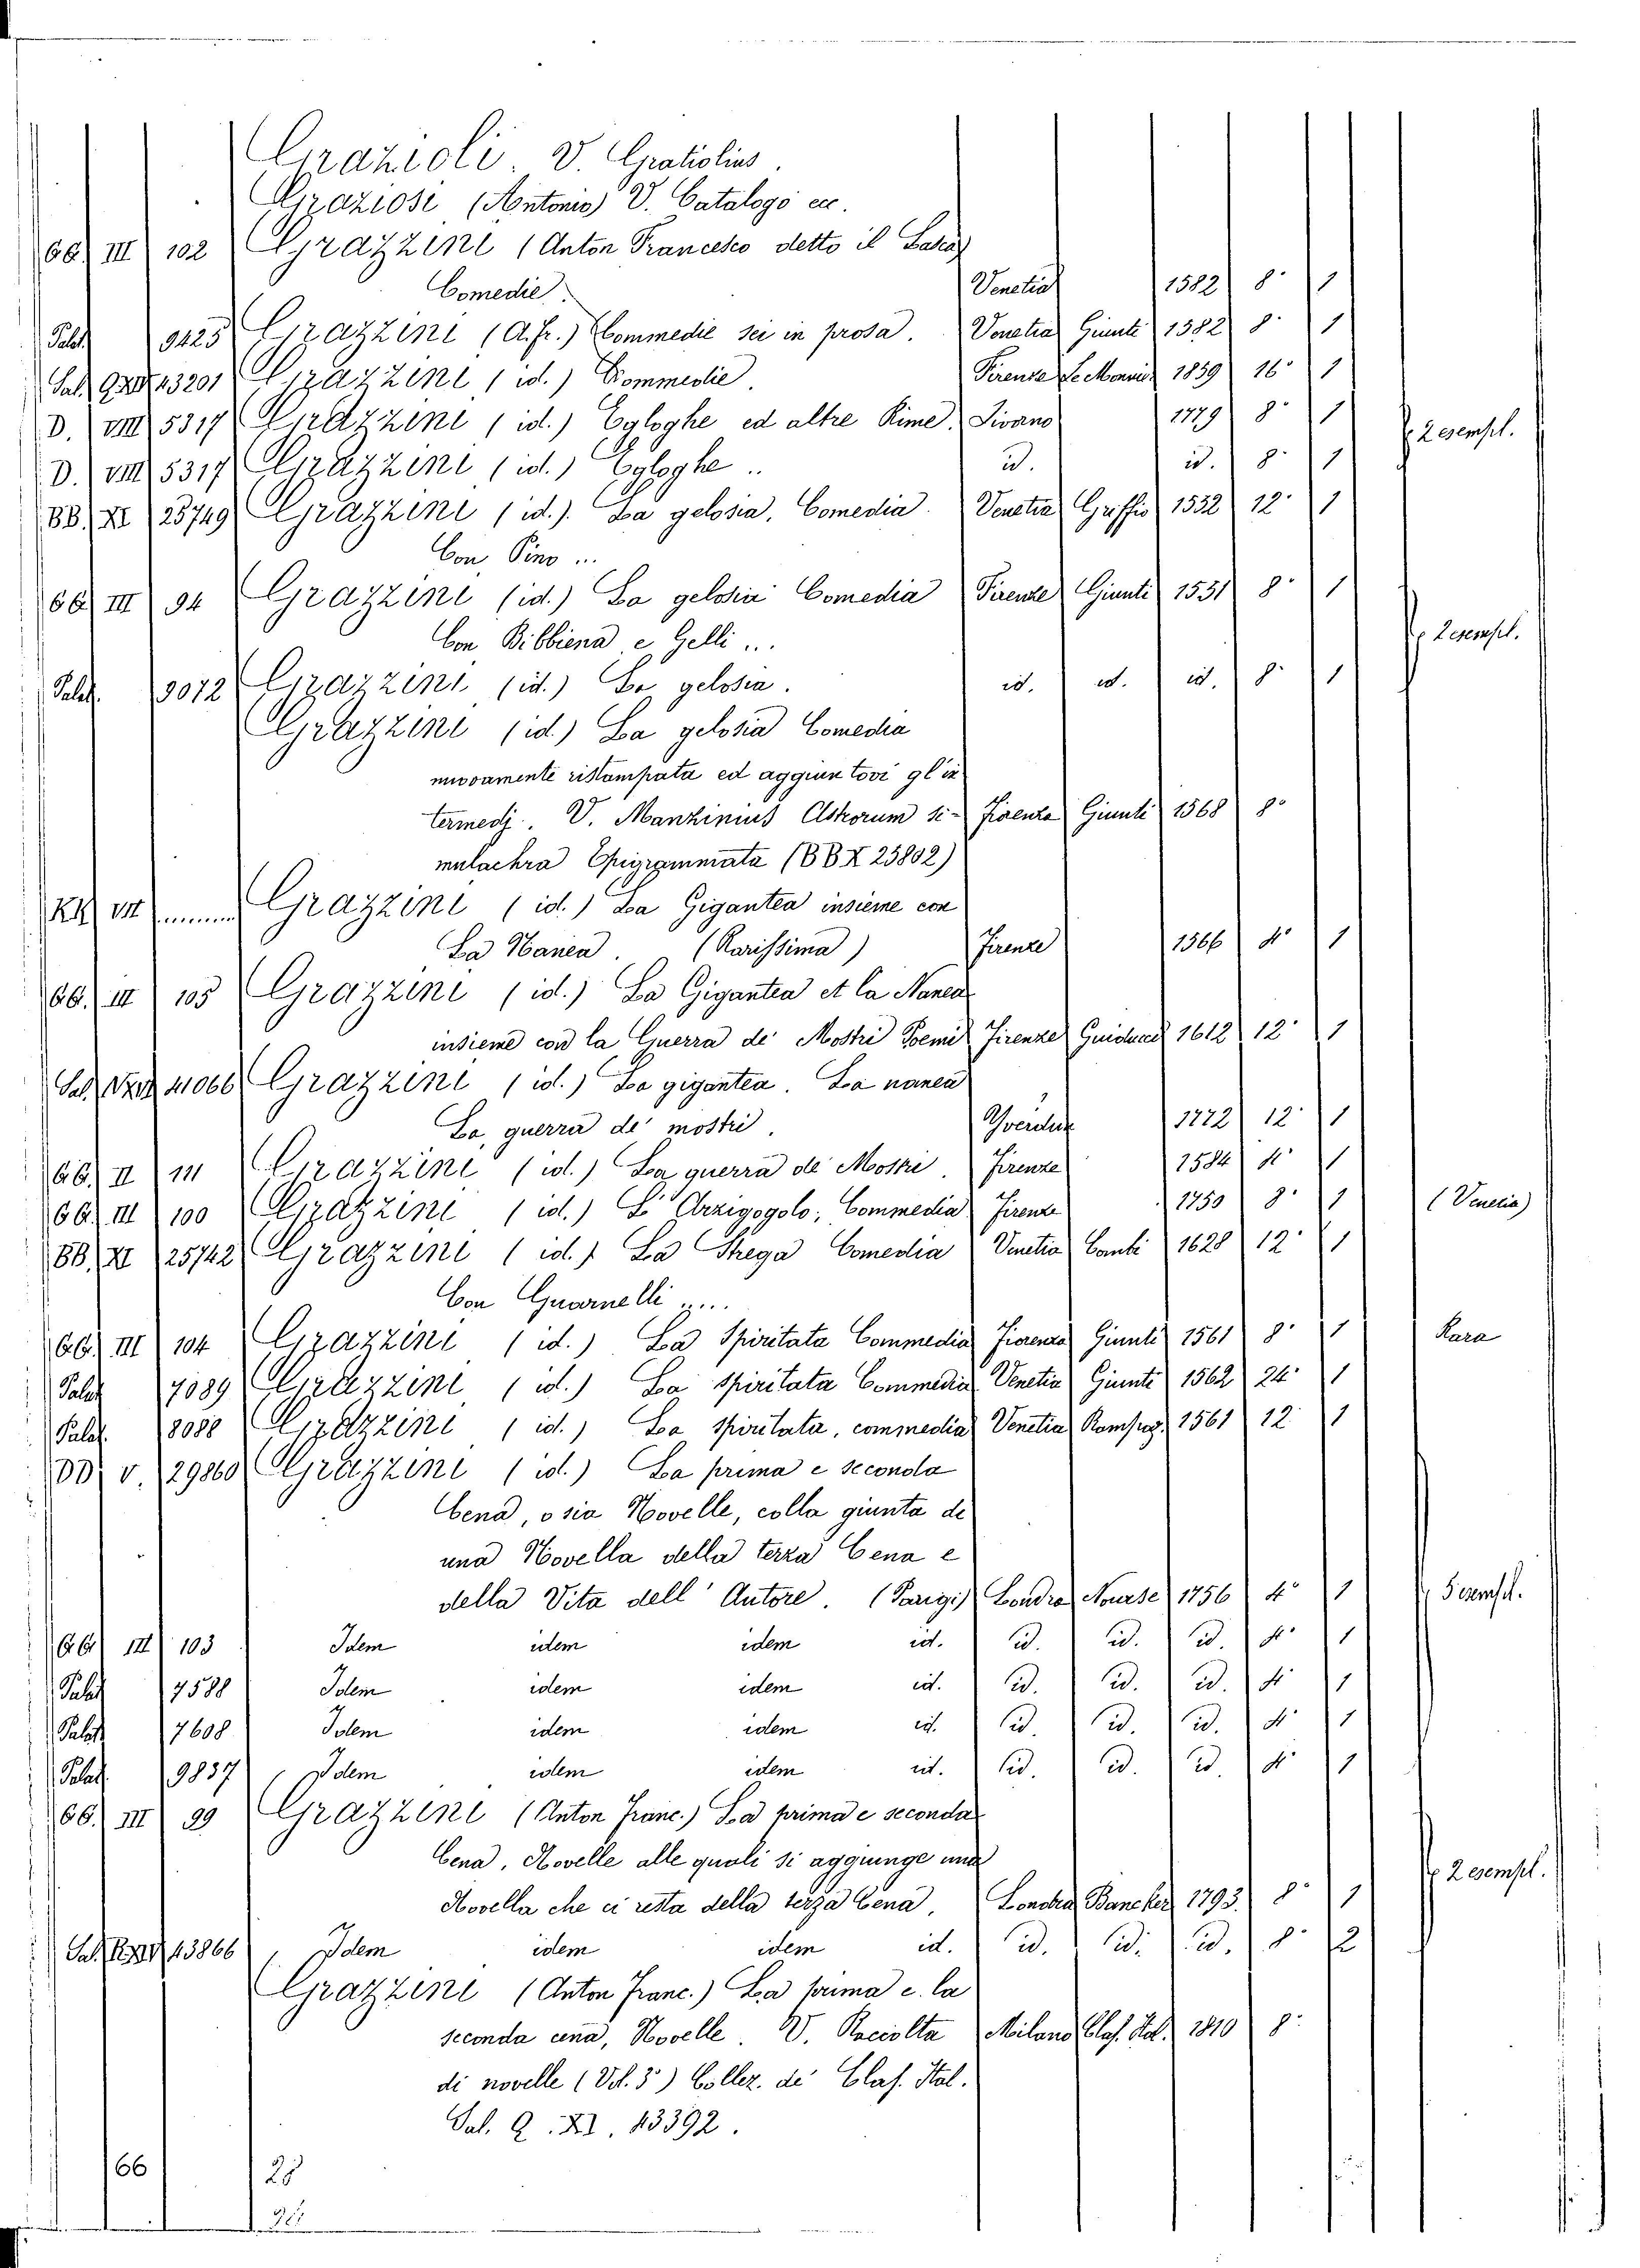 Grazioli. V. Gratiolius.
Graziosi (Antonio) V. Catalogo ec.
66. III 102 Grazzini (Anton Francesco detto il Lasca)
Comedie. Venetia 1582 8° 1
Palat. 9425 Grazzini (A. Fr.) Commedie sei in prosa. Venetia Giunti 1582 8° 1
Sal. 13201 Grazzini (id.) Commedie Firenze Le Monnier 1859 16° 1
D. VIII 5317 Grazzini (id.) Egloghe ed altre Rime. Livorno 1779 8° 1 2 esempl.
D. VIII 5317 Grazzini (id.) Egloghe .. id. id. 8° 1
BB. XI 25749 Grazzini (id.). La gelosia, Comedia. Venetia Griffio 1552 12° 1
Con Pino ...
66 III 94 Grazzini (id.) La gelosia Comedia Firenze Giunti 1551 8° 1 2 esempl.
Con Bibbiena e Gelli ...
Palat. 9072 Grazzini (id.) La gelosia. id. id. id. 8° 1
Grazzini (id.) La gelosia Comedia
nuovamente ristampata ed aggiuntovi gl'in
termedj. V. Manzinius Astrorum si- Fiorenza Giunti 1568 8°
mulachra Epigrammata (BB X 25802)
KK VII ...... Grazzini (id.) La Gigantea insieme con
La Nanea. (Rarissima) Firenze 1566 4° 1
66. III 105 Grazzini (id.) La Gigantea et la Nanea
insieme con la Guerra de' Mostri Poemi Firenze Guiducci 1612 12° 1
Sal. 41066 Grazzini (id.) La gigantea. La nanea
La guerra de' mostri. Yverdun 1772 12° 1
66. II 111 Grazzini (id.) La guerra de' Mostri. Firenze 1584 4° 1
66. III 100 Grazzini (id.) L'Arzigogolo, Commedia Firenze 1750 8° 1 (Venezia)
BB. XI 25742 Grazzini (id.) La Strega Comedia Venetia Combi 1628 12° 1
Con Guarnelli ....
66. III 104 Grazzini (id.) La Spiritata Commedia Fiorenza Giunti 1561 8° 1 Rara
Palat. 7089 Grazzini (id.) La Spiritata Commedia Venetia Giunti 1562 24° 1
Palat. 8088 Grazzini (id.) La spiritata, commedia Venetia Rampaz. 1561 12 1
DD. V. 29860 Grazzini (id.) La prima e seconda
Cena, o sia Novelle, colla giunta di
una Novella della terza Cena e
della Vita dell'Autore. (Parigi) Londra Nourse 1756 4° 1 5 esempl.
66. III 103 Idem idem idem id. id. id. id. 4° 1
Palat. 7588 Idem idem idem id. id. id. id. 4° 1
Palat. 7608 Idem idem idem id. id. id. id. 4° 1
Palat. 9837 Idem idem idem id. id. id. id. 4° 1
66. III 99 Grazzini (Anton Franc.) La prima e seconda
Cena, Novelle alle quali si aggiunge una
Novella che ci resta della terza Cena, Londra Bancker 1793. 8° 1 2 esempl.
Sal. 13866 Idem idem idem id. id. id. id. 8° 2
Grazzini (Anton Franc.) La prima e la
seconda cena, Novelle. V. Raccolta Milano Clas. Ital. 1810 8°
di novelle (Vol. 3°) Collez. de' Clas. Ital.
Sal. Q. XI. 13392.
66 28